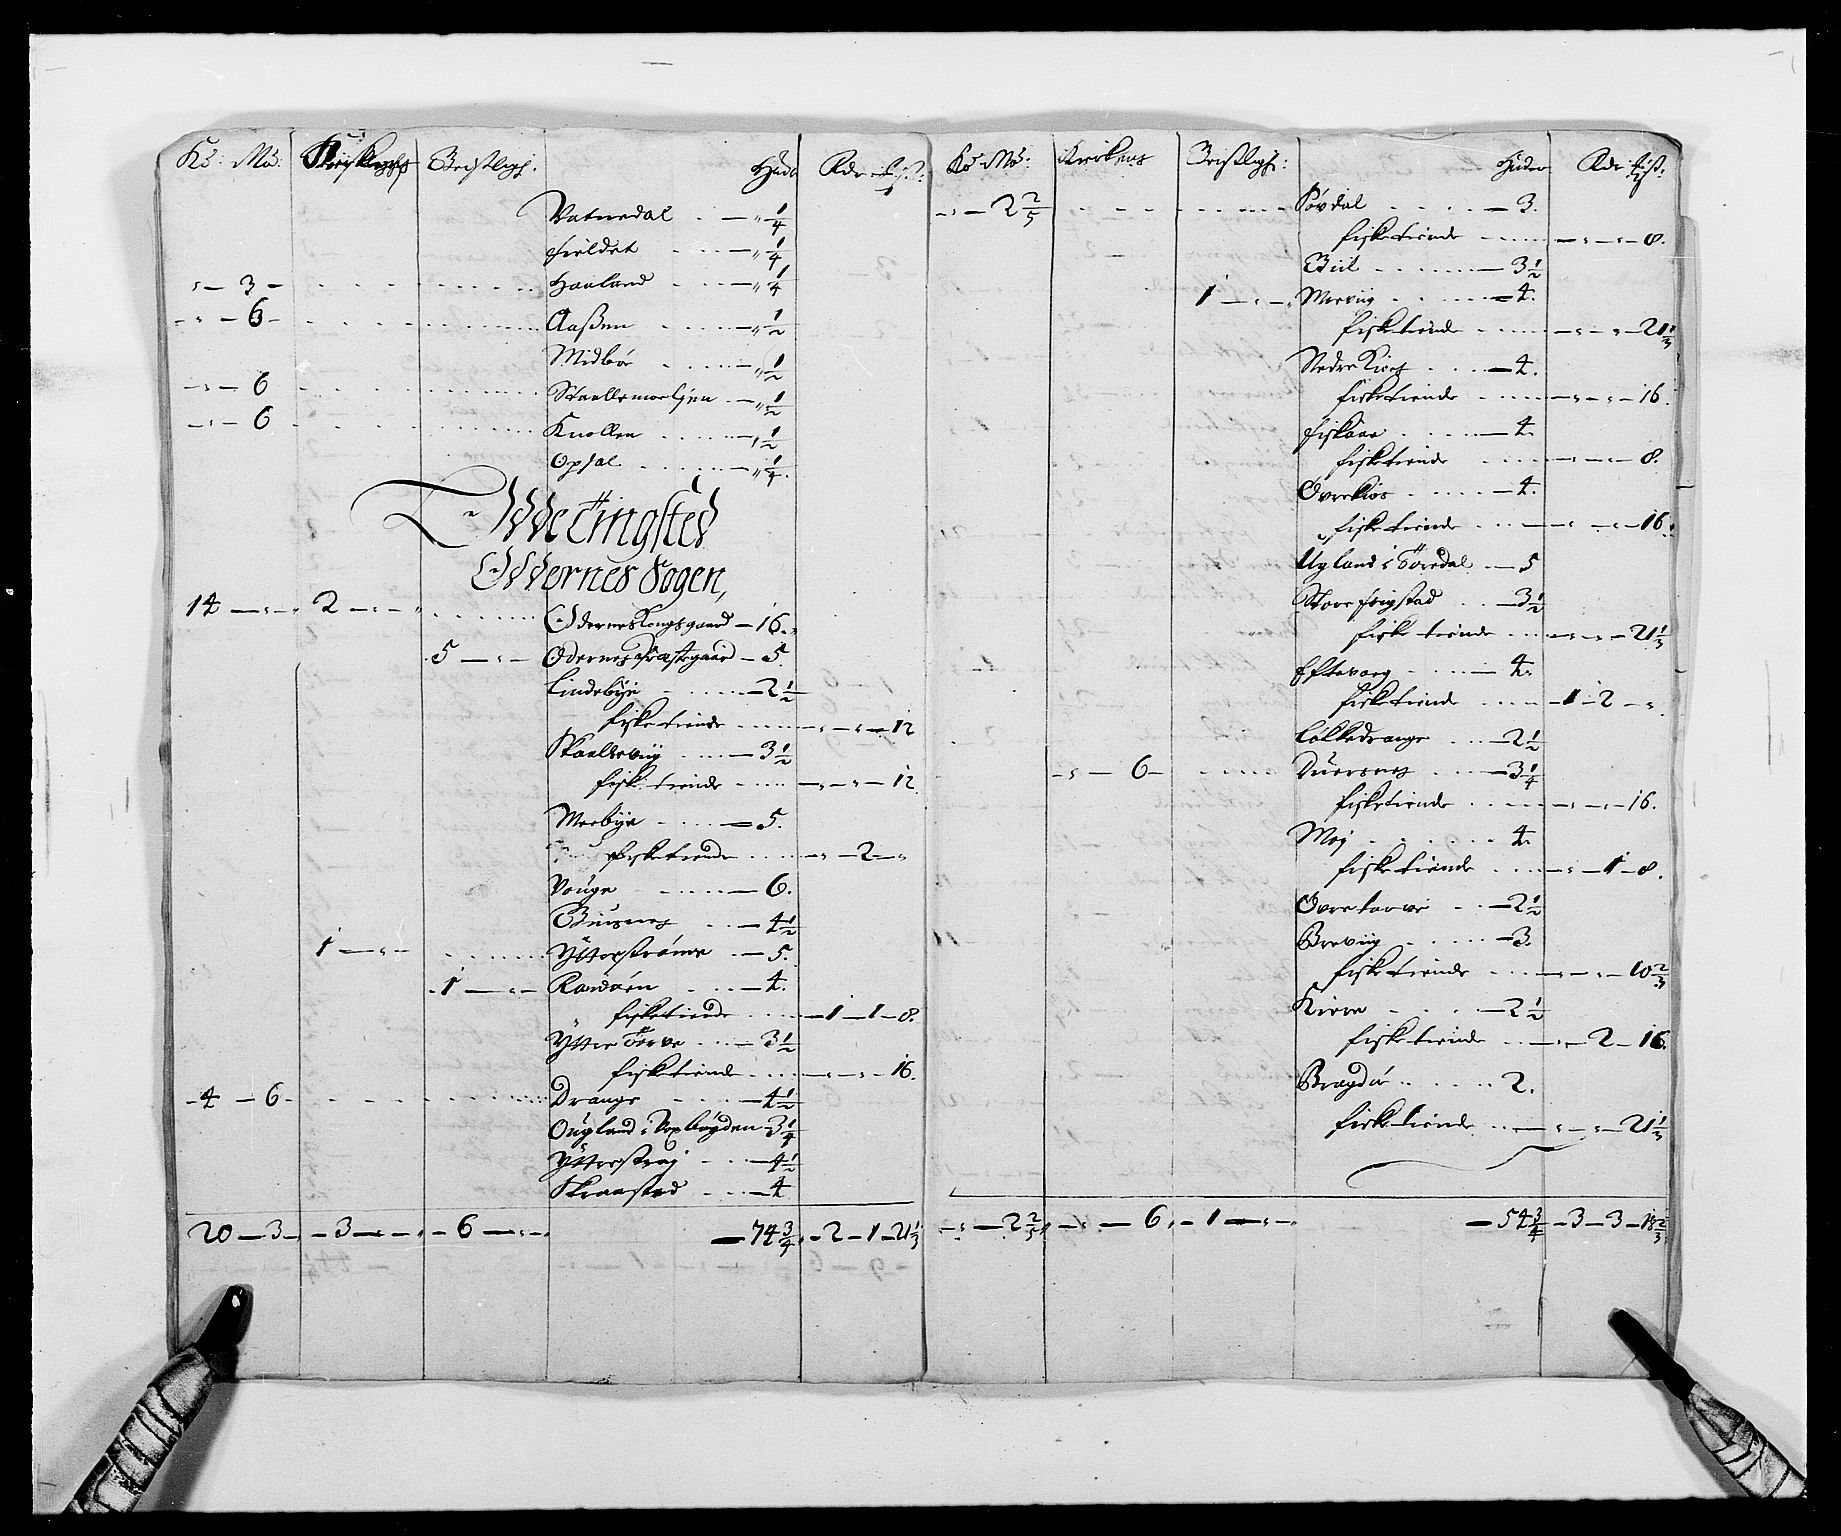 Kö: Mö: Kirkleigs Beistligh: Hud Rdr fisk:
Vatnedal . . — " 1/4
fieldet . . . . — " 1/4
" — 3 — . . . . Haaland . . . — " 1/4
— " — 6 — . . . . Aaßen . . . . — " 1/2
Midböe . . . . — " 1/2
— " — 6 . . . . Staallemoeljen . . — " 1/2
— " — 6 . . . . Knollen . . . . — " 1/2
Opsal . . . . — " 1/4
Odde Tingsted
Oddernes Sogen,
14 — " — " 2 — " — " . . . . Odernes Kongsgaard — 16 "
5 — " — Odernes Præstegaard — 5
Lindebÿe . . . . — 2 1/2
fisketiende . . . . — " — " — 12
Skaallevig . . . . — 3 1/2
fisk: tiende . . . . — " — " — 12
Meebÿe . . . . — 5.
fisketiende . . . . — " — 2 — "
Vouge . . . . — 6.
Buusnes . . . — 4 1/2
1 — " — . . . . Ÿtterströme . . — 5.
1 — " — Randöen . . . — 4.
fisketiende . . . . — 1 — 1 — 8.
Ÿttre Torve . . . — 3 1/2
fisketiende . . . . — " — " — 16.
— 4 — 6 — . . . . Drange . . . — 4 1/2
Ougland i Vexbögden — 3 1/4
Ÿtterstraj . . . — 4 1/2
Skraastad . . . — 4
20 — 3 — — 3 — " — " — 6 — " — — 74 3/4 — 2 — 1 — 21 1/3
Kö: Mö: Kirkens Beistligh: Huder Rdr fisk:
— " — 2 2/5 . . . . Sövdal . . . . — 3.
fisketiende . . . . — " — " — 8.
Biil . . . . — 3 1/2
1 — " — " Moevig . . . . — 4.
fisketiende . . . . — " — " — 21 1/3
Nedre Kiös . . . . — 4.
fisketiende . . . . — " — " — 16
fiskaae . . . . — 4.
fisketiende . . . . — " — " — 8.
Övrekiös . . . . — 4.
fisketiende . . . . — " — " — 16.
Ugland i Toredal . . — 5
Store frigstad . . — 3 1/2
fisketiende . . . . — " — " — 21 1/3
Eftevaag . . . . — 4.
fisketiende . . . . — 1 — 2 — "
Lölledrange . . . — 2 1/2
— " — 6 — . . . . Duersnes . . . . — 3 1/4
fisketiende . . . . — " — " — 16.
Moj . . . . 4.
fisketiende . . . . — " — 1 — 8.
Övretorve . . — 2 1/2
Breviig . . . . — 3.
fisketiende . . . . — " — " — 10 2/3
Kirre . . . . — 2 1/2
fisketiende . . . — " — 2 — 16.
Bragdö . . . . 2.
fisketiende . . — " — " — 21 1/3
— " — 2 2/5 — " — 6 — 1 — " — — 54 3/4 — 3 — 3 — 18 2/3